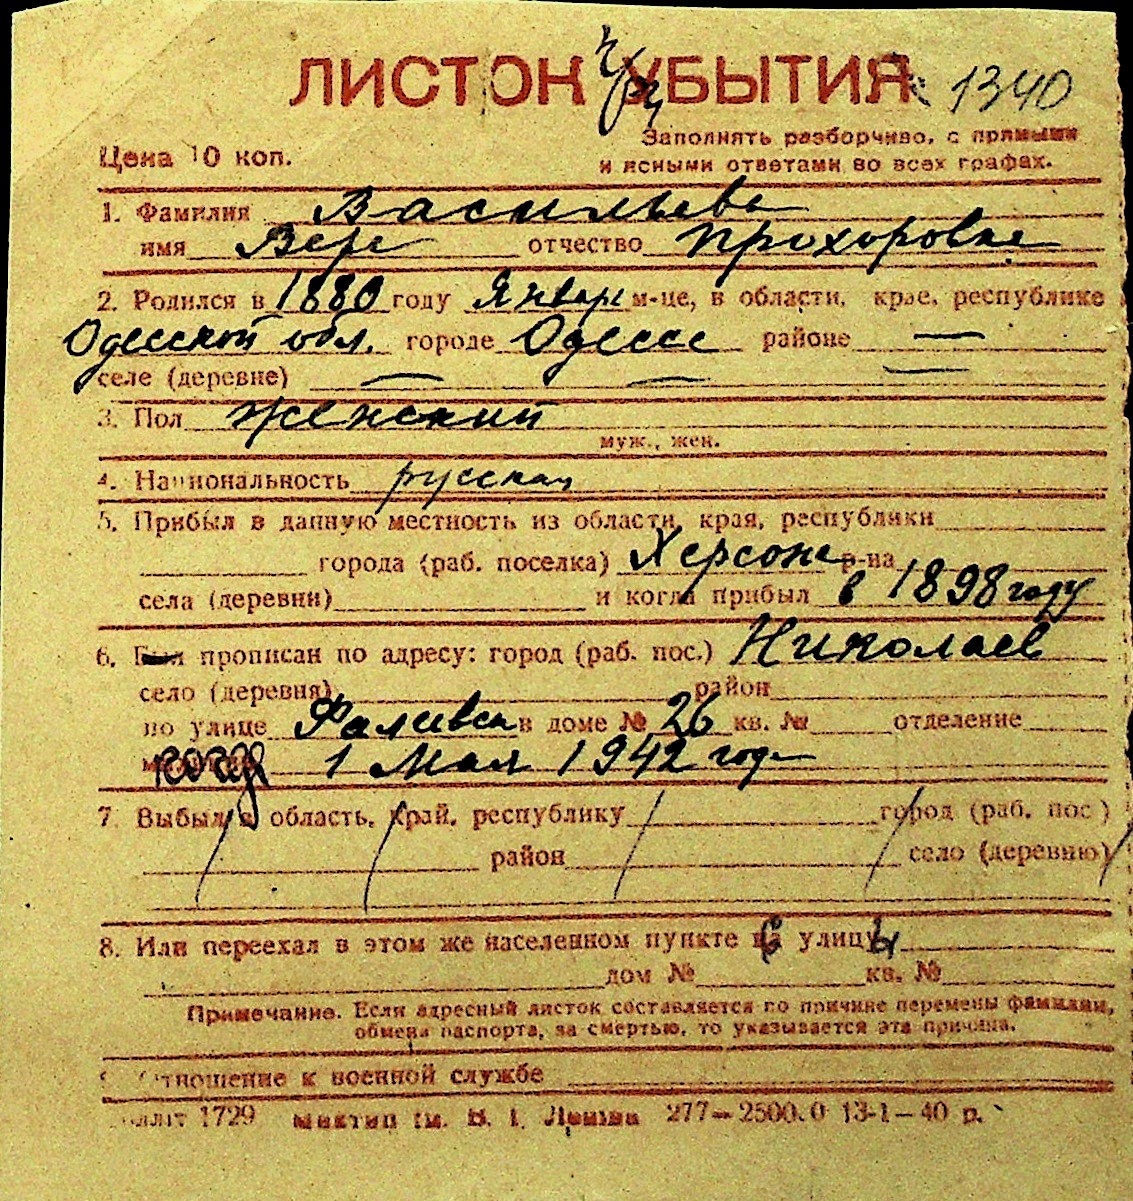 ЛИСТОК УБЫТИЯ 1340
Цена 10 коп.
Заполнять разборчиво, с прямыми
и ясными ответами во всех графах.
1. Фамилия Васильева
имя Вера отчество Прохоровна
2. Родился в 1880 году Январе м-це, в области, крае, республике
Одесской обл. городе Одесса районе —
селе (деревне) — — —
3. Пол женский
муж., жен.
4. Национальность русская
5. Прибыл в данную местность из области, края, республики
города (раб. поселка) Херсона р-на
села (деревни) и когда прибыл в 1898 году
6. Был прописан по адресу: город (раб. пос.) Николаев
село (деревня) район
по улице в доме № 26 кв. № отделение
когда 1 Мая 1942 года
7. Выбыл в область, край, республику город (раб. пос.)
район село (деревню)
8. Или переехал в этом же населенном пункте на улицу
дом № кв. №
Примечание. Если адресный листок составляется по причине перемены фамилии,
обмена паспорта, за смертью, то указывается эта причина.
Отношение к военной службе
1729 им. В. І. Леніна 277—2500.0 13-1—40 р.